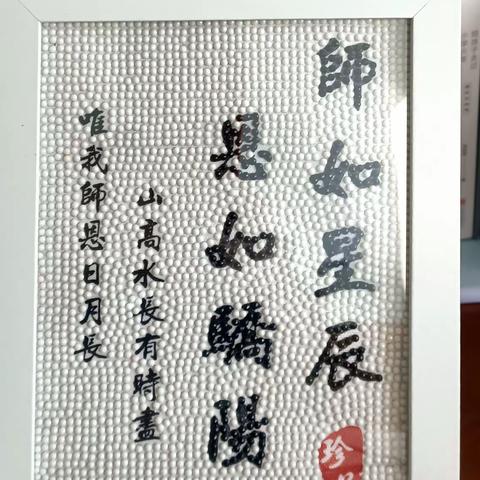 師如星辰
恩如驕陽
山高水長有時盡
唯我師恩日月長
珍